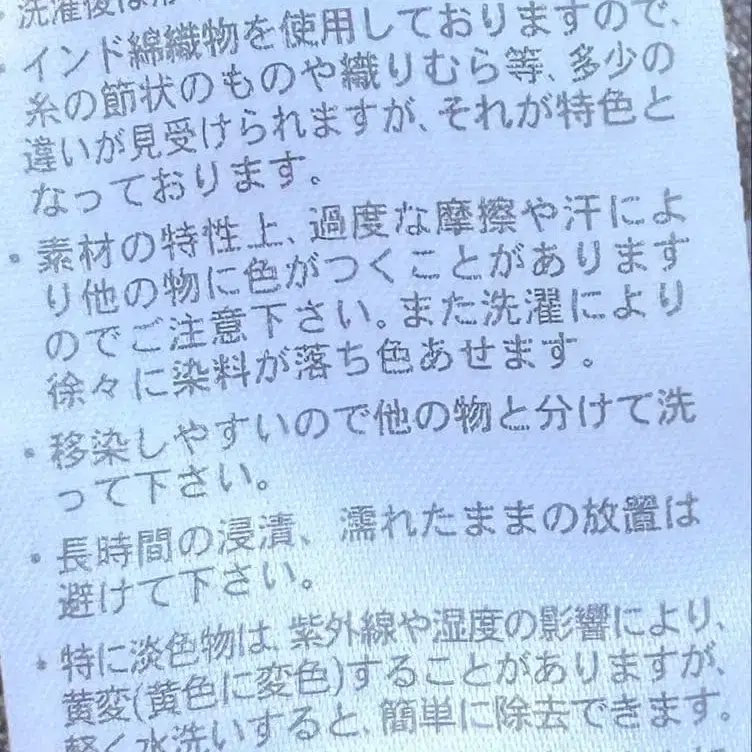 洗濯後は
・インド綿織物を使用しておりますので、
糸の節状のものや織りむら等、多少の
違いが見受けられますが、それが特色と
なっております。
・素材の特性上、過度な摩擦や汗によ
り他の物に色がつくことがあります
のでご注意下さい。また洗濯により
徐々に染料が落ち色あせます。
・移染しやすいので他の物と分けて洗
って下さい。
・長時間の浸漬、濡れたままの放置は
避けて下さい。
・特に淡色物は、紫外線や湿度の影響により、
黄変(黄色に変色)することがありますが、
軽く水洗いすると、簡単に除去できます。